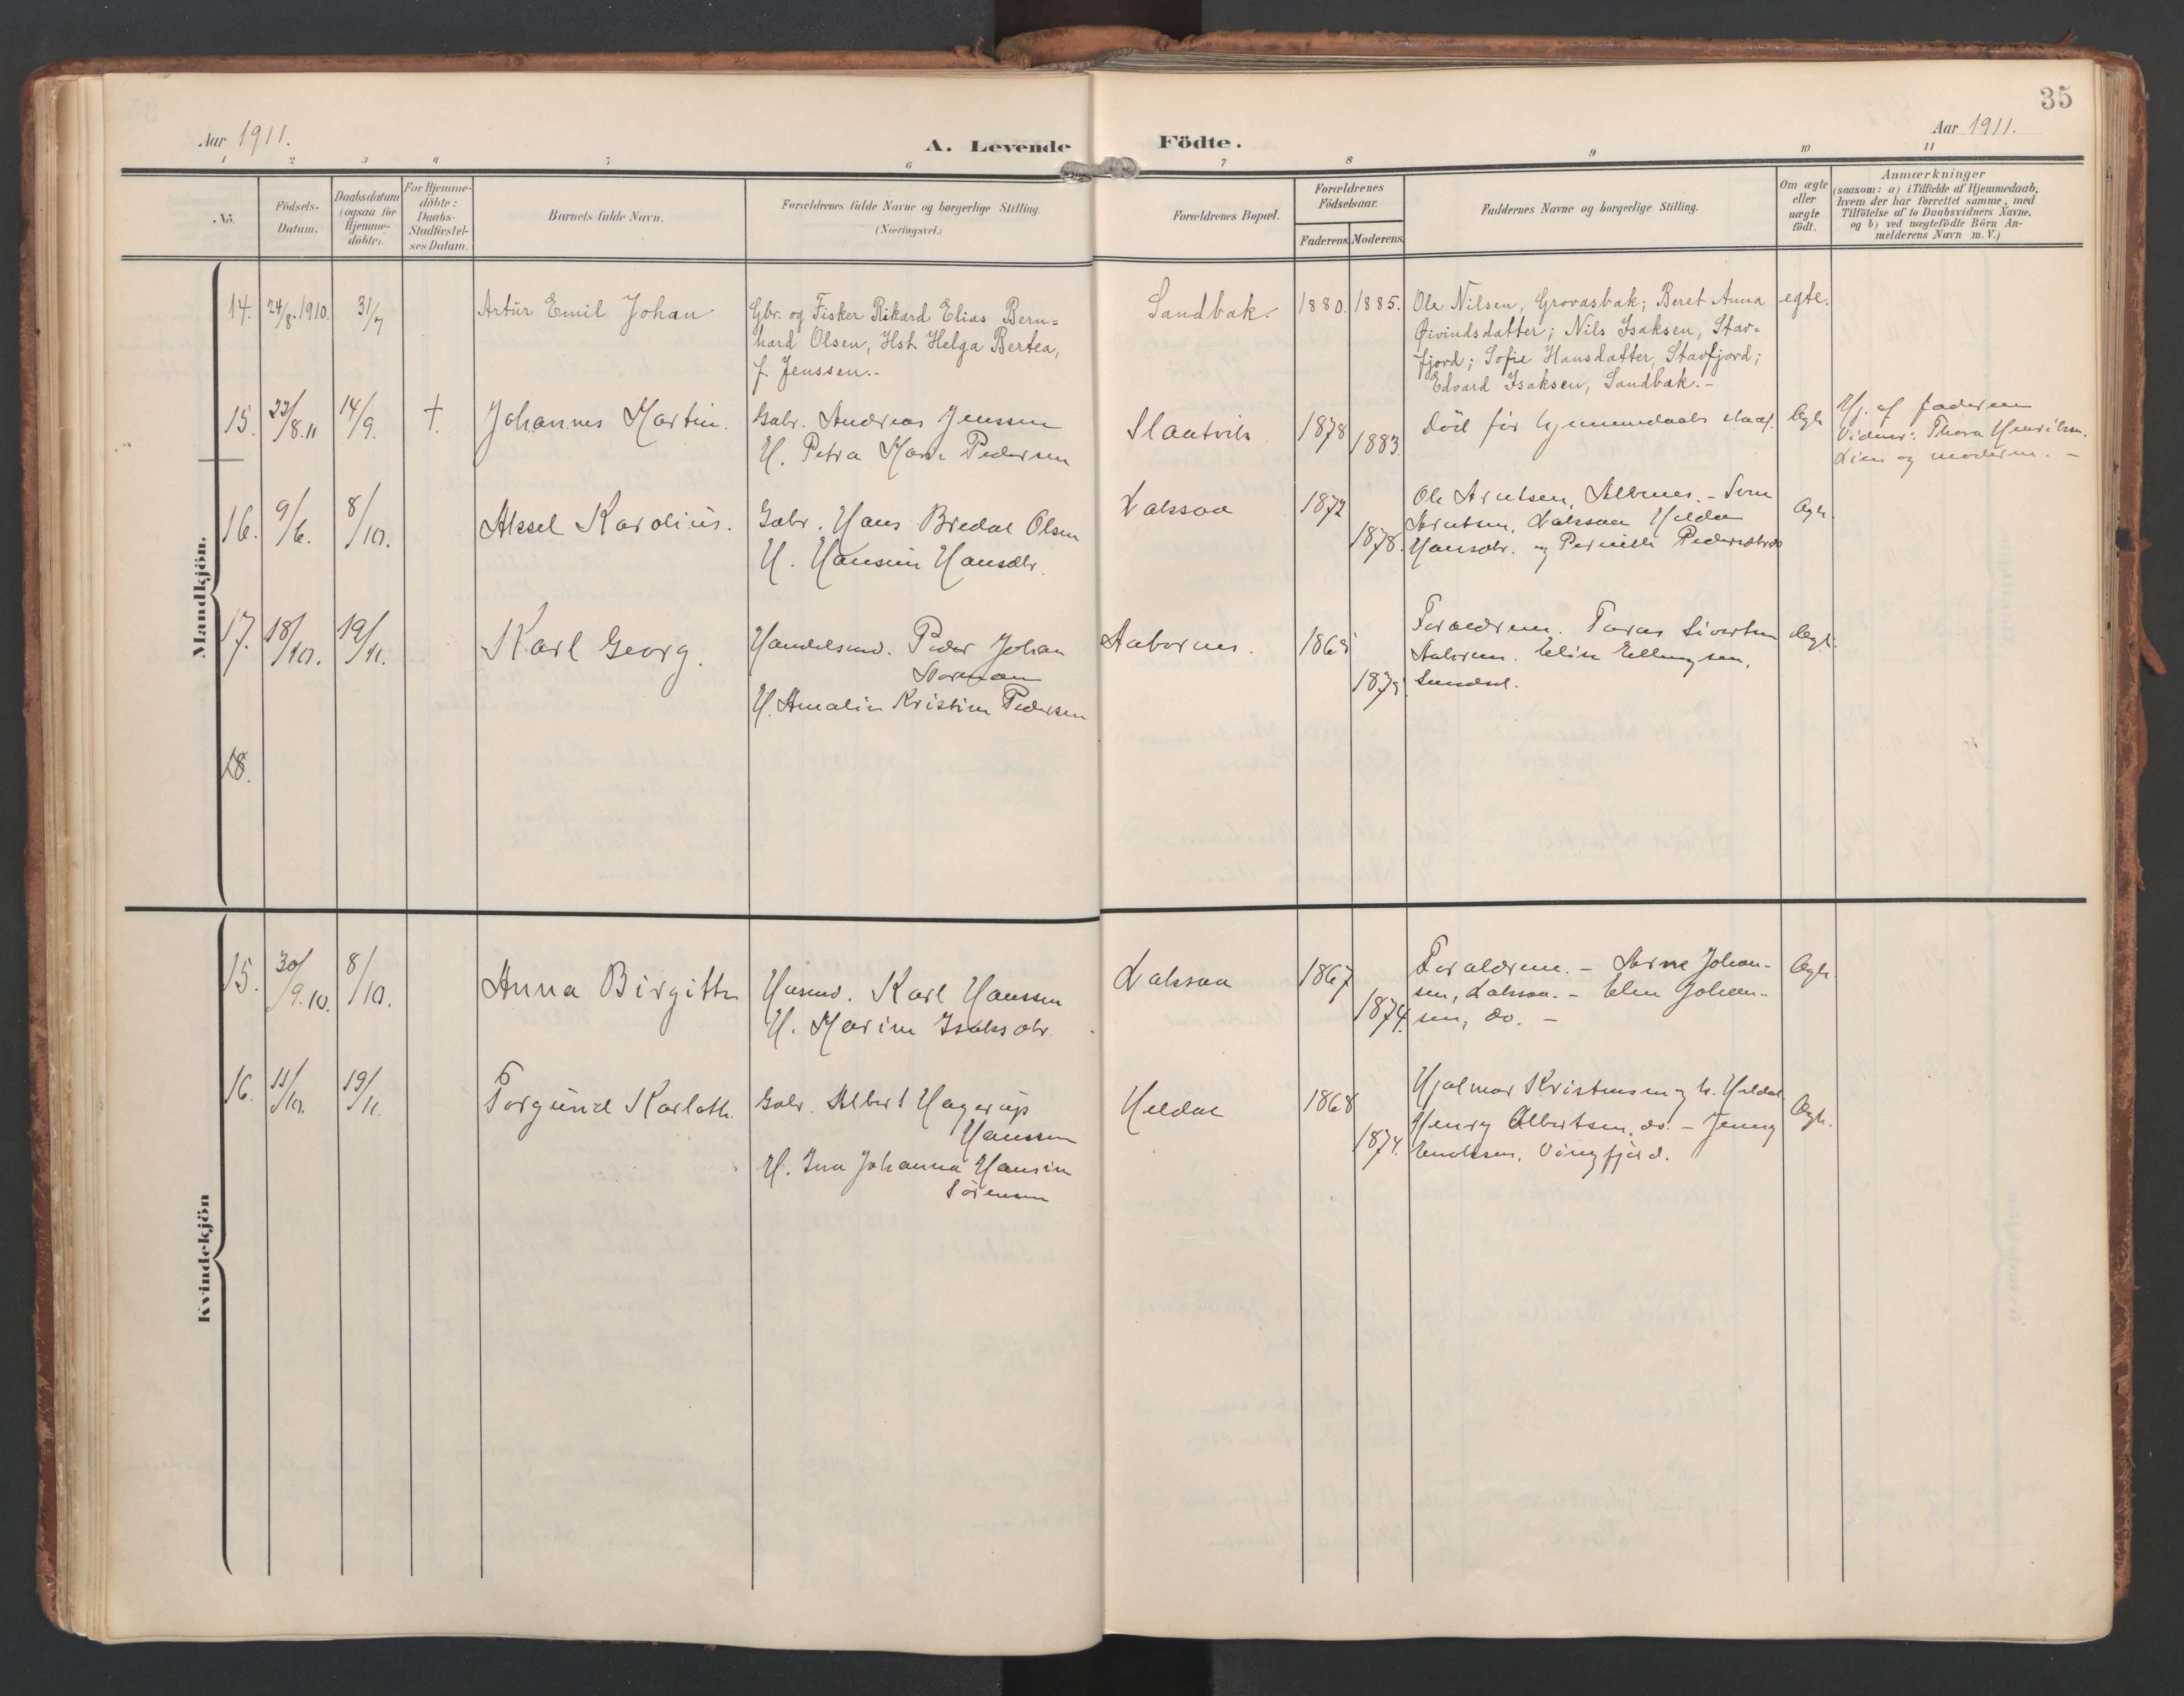 35
Aar 1911.
A. Levende Födte.
Aar 1911.
1 2 3 4 5 6 7 8 9 10 11
No.
Födsels-
Datum.
Daabsdatum
(ogsaa for
Hjemme-
döbte).
For Hjemme-
döbte:
Daabs-
Stadfæstel-
ses Datum.
Barnets fulde Navn.
Forældrenes fulde Navne og borgerlige Stilling.
(Næringsvei.)
Forældrenes Bopæl.
Forældrenes
Födselsaar.
Faderens. Moderens.
Faddernes Navne og borgerlige Stilling.
Om ægte
eller
uægte
födt.
Anmærkninger
(saasom: a) i Tilfælde af Hjemmedaab,
hvem der har forrettet samme, med
Tilföielse af to Daabsvidners Navne,
og b) ved uægtefödte Börn An-
melderens Navn m. V.)
Mandkjön.
14. 24/8. 1910. 31/7 Artur Emil Johan
Gbr. og Fisker Rikard Elias Bern=
hard Olsen, Hst. Helga Bertea,
f. Jenssen.-
Sandbak. 1880. 1885.
Ole Nilsen, Grovasbak; Beret Anna
Øivindsdatter; Nils Isaksen, Stav=
fjord; Sofie Hansdatter, Stavfjord;
Edvard Isaksen, Sandbak.-
egte.
15. 23/8.11 14/9. † Johannes Martin.
Gabr. Andreas Jenssen
H. Petra Marie Pedersen
Slaatvik. 1878 1883.
Död för hjemmedaabs stadf.
Ægte
Hj. af faderen
Vidner: Thora Henriksen.
Lien og moderen. -
16. 9/6. 8/10. Aksel Karolius.
Gabr. Hans Bredal Olsen
H. Hansine Hansdtr.
Laksaa 1872 1878.
Ole Arntsen, Alernes. - Sven
Arntsen, Laksaa Hilda
Hansdtr. og Pernille Pedersdtr do
Ægte.
17. 18/10. 19/11. Karl Georg.
Handelsmd. Peder Johan
Norman
H. Amalie Kristine Pedersen
Aabornes. 1865 1875
Forældrene. Sivertsen
Elise Ellingsen,
Ægte.
18.
Kvindekjön
15. 30/9.10. 8/10. Anna Birgitte
Husmd. Karl Hanssen
H. Marine Isaksdtr.
Laksaa 1867 1874.
Forældrene. - Arne Johan-
sen, Laksaa. - Elen Johan-
sen, do. -
Ægte.
16. 11/10. 19/11. Torgund Karlotte.
Gabr. Albert Hagerup
Hanssen
H. Ina Johanna Hansine
Sörensen
Heldal 1868 1874.
Hjalmar Kristensen og h. Heldal
Henry Albertsen, do. - Jenny
Enoksen, Vingfjord.
Ægte.